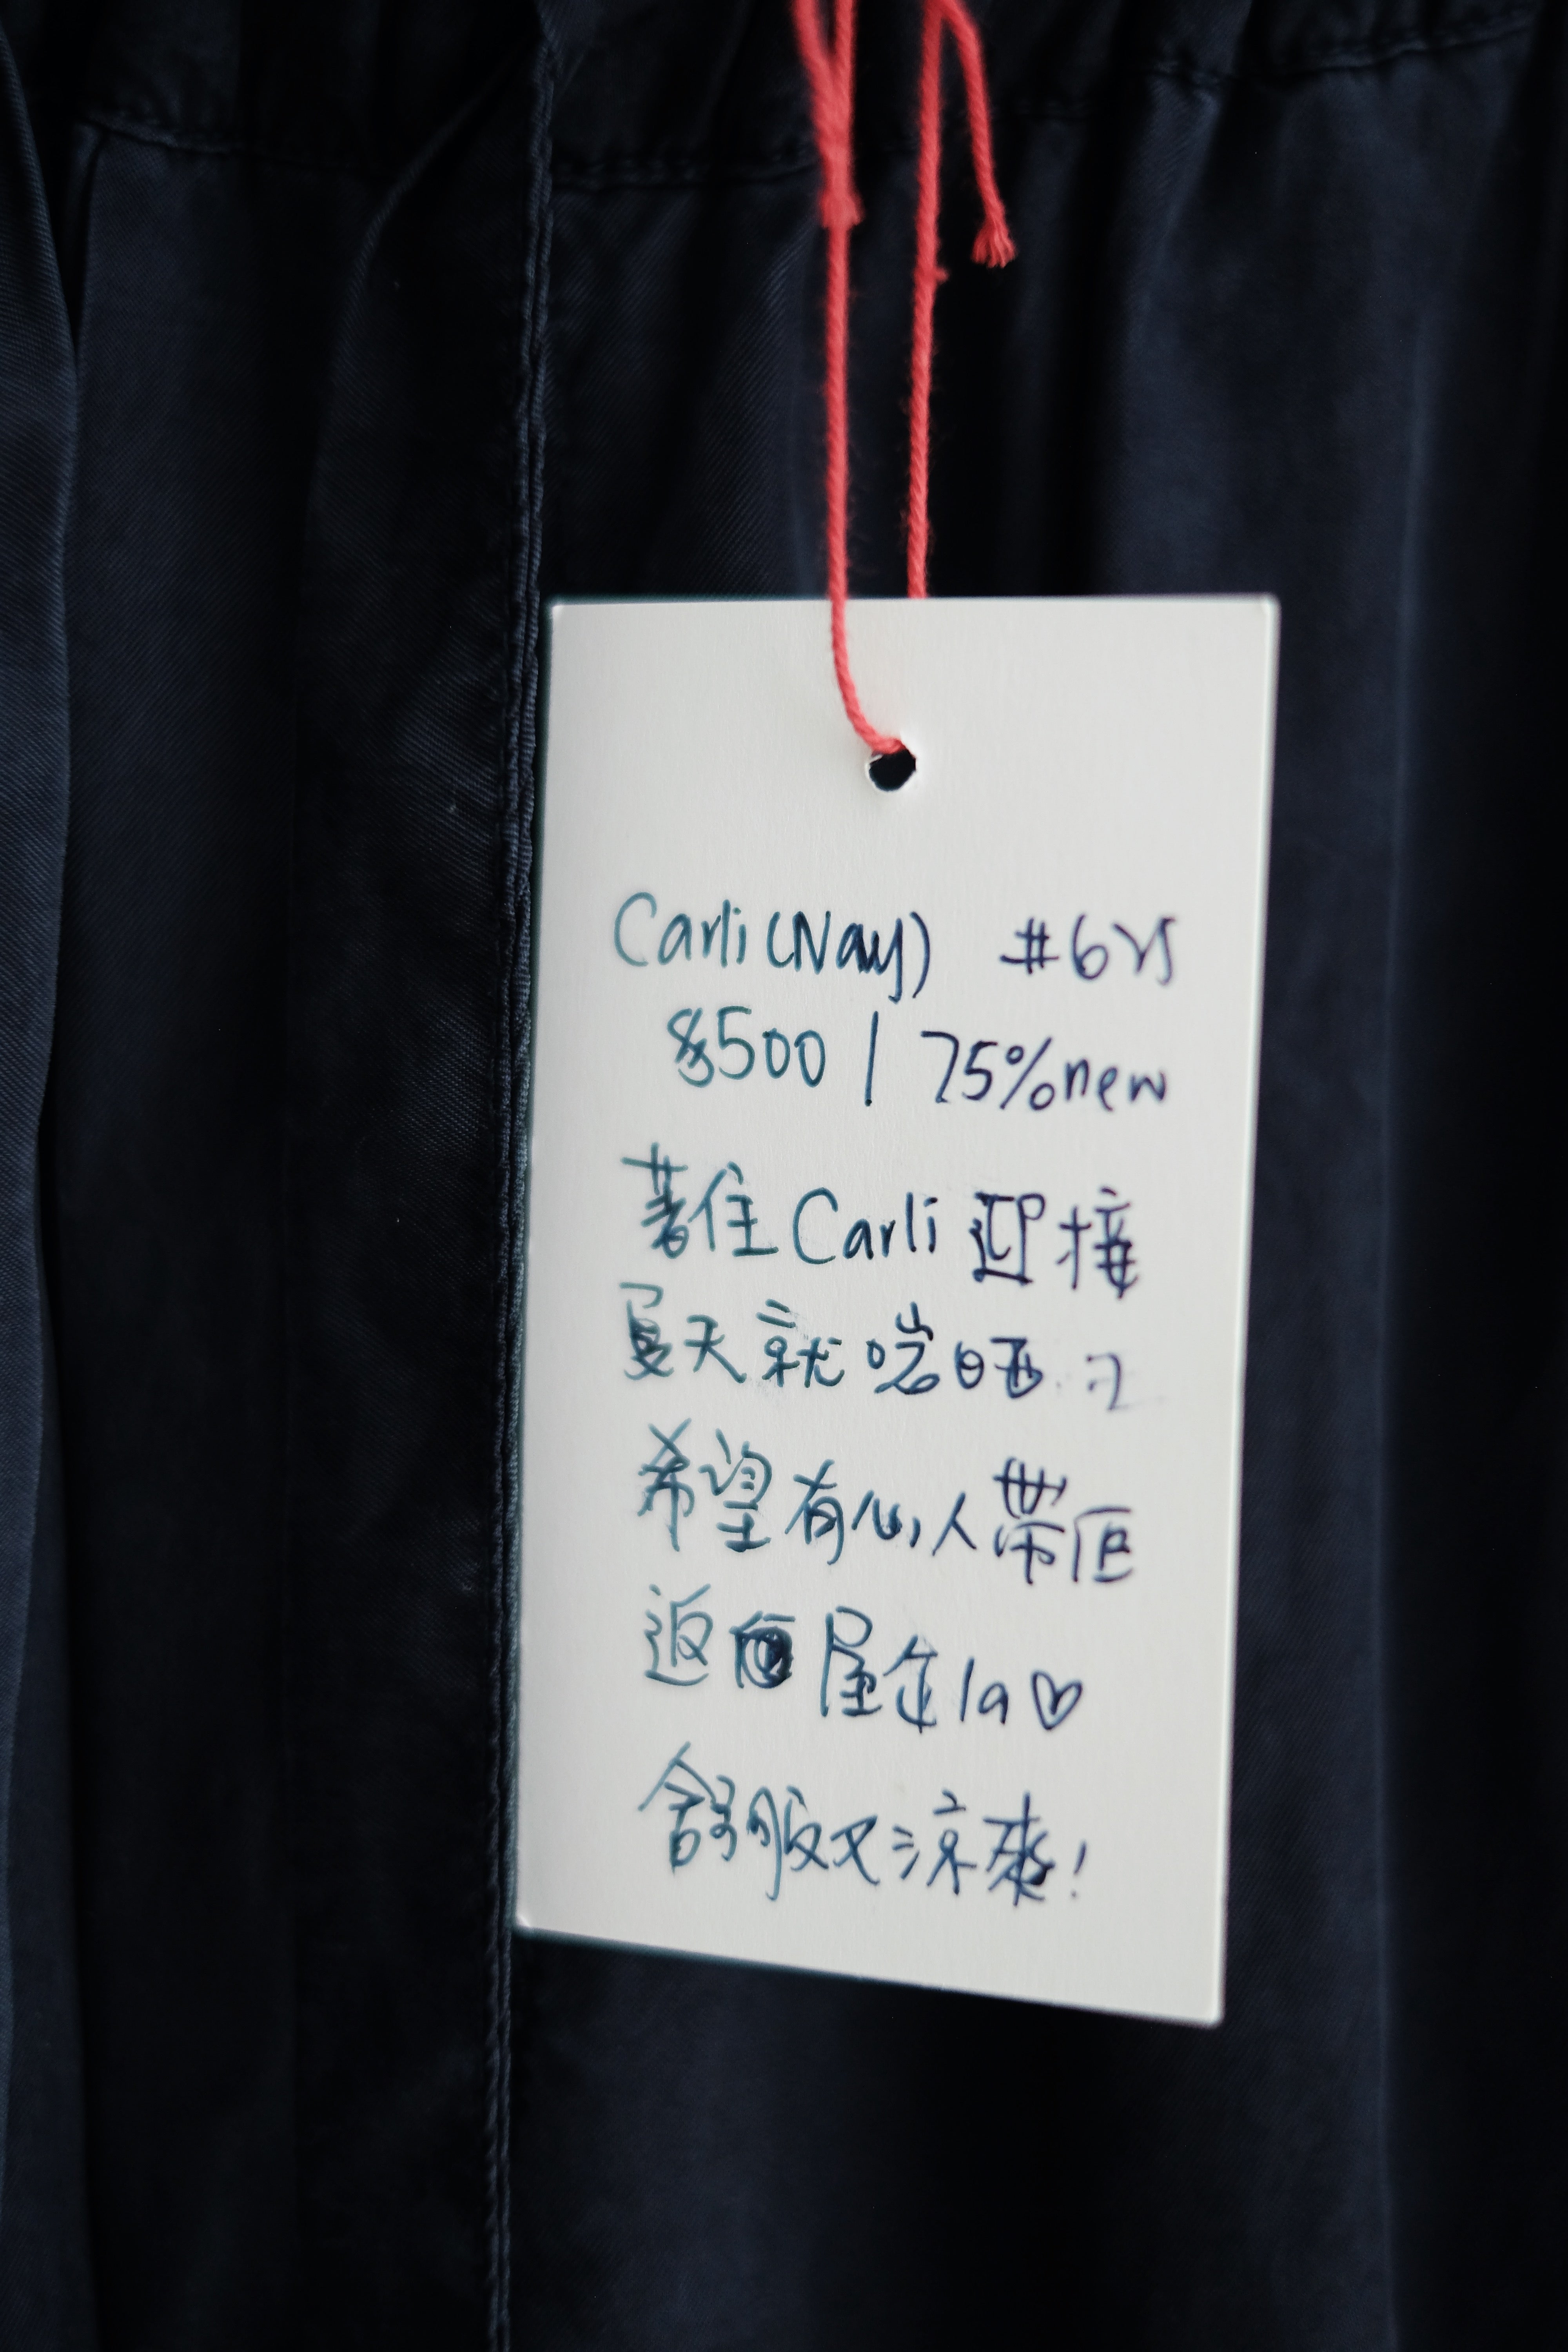 Carli (Navy) #6以
$500 | 75%new
著住Carli 迎接
夏天就啱晒
希望有心人帶佢
返屋企la♡
舒服又涼爽!